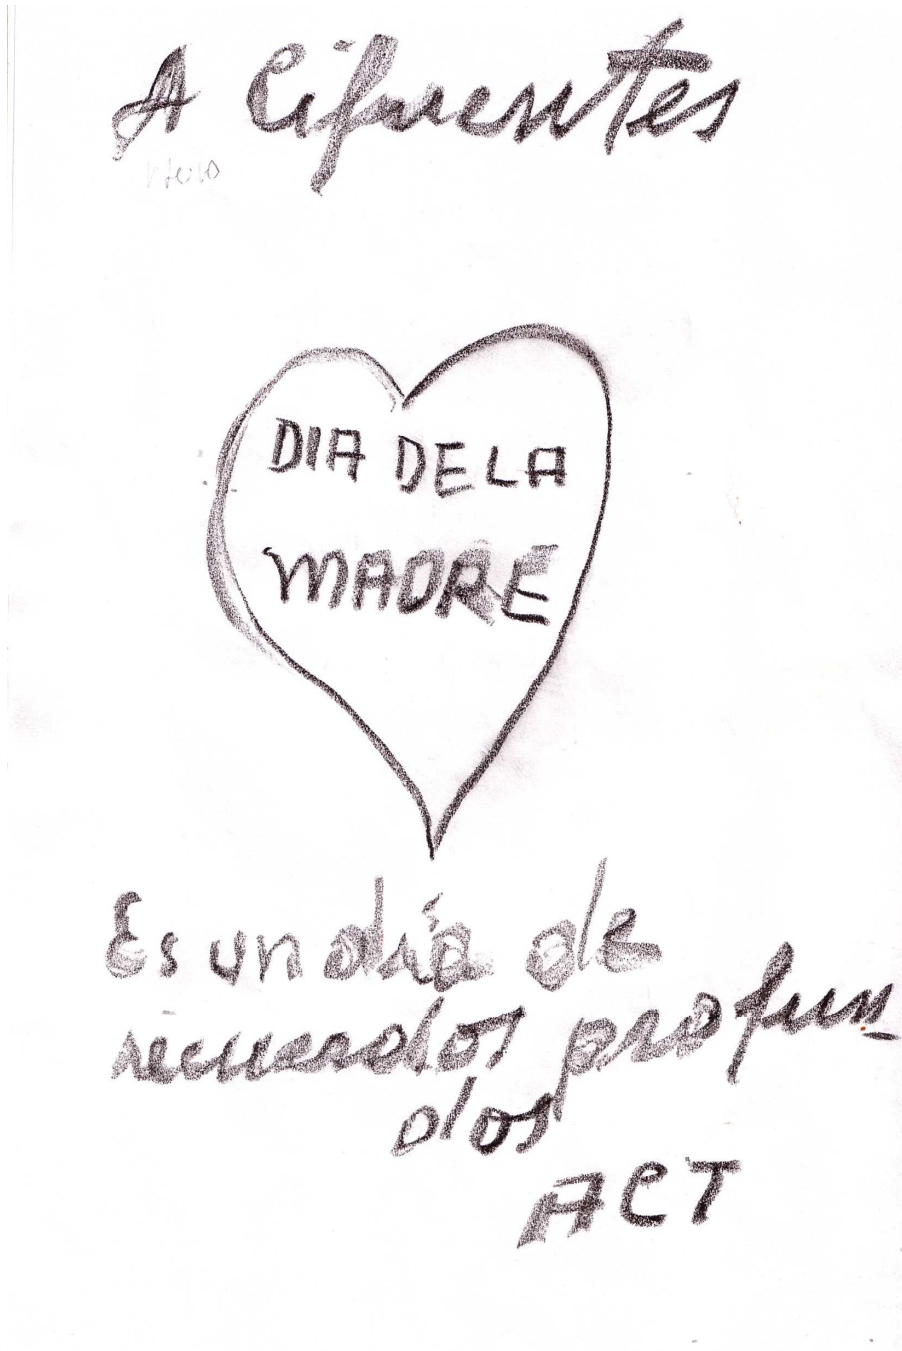 A Cifuentes
DIA DE LA
MADRE
Es un día de
recuerdos profun_
dos
ACT